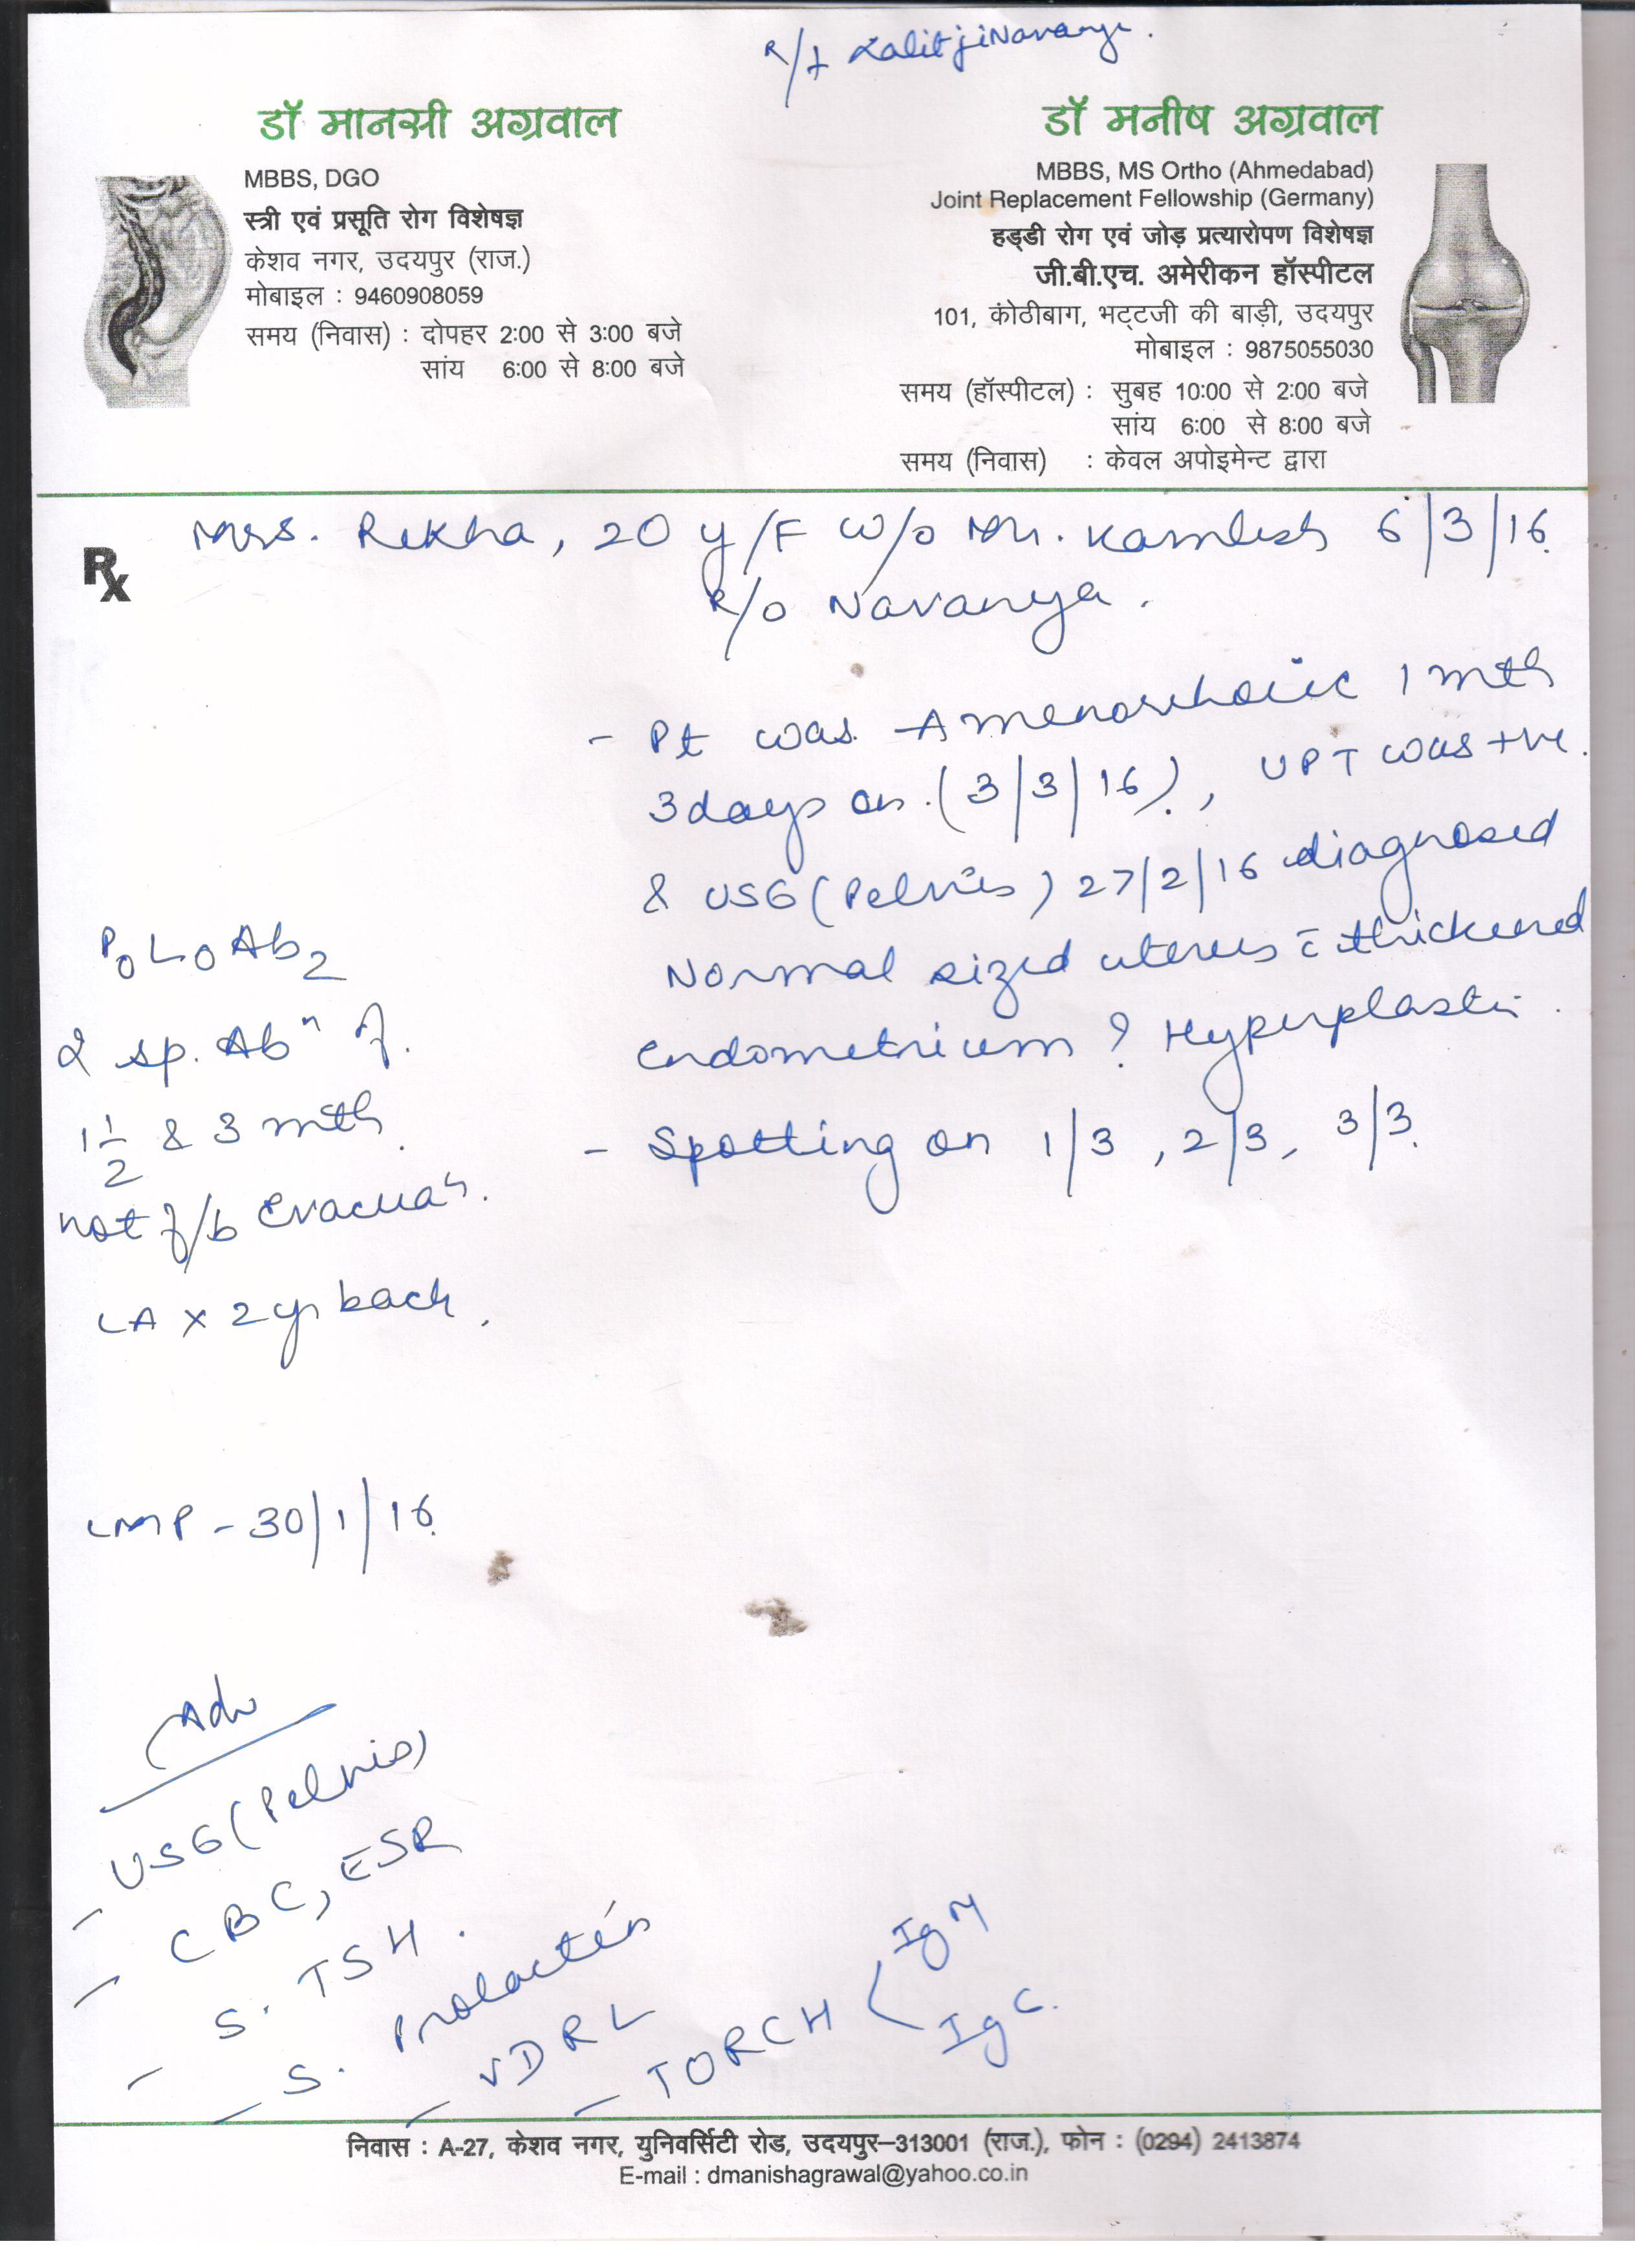 R/f Lalitji Navanya.
डॉ मानसी अग्रवाल
MBBS, DGO
स्त्री एवं प्रसूति रोग विशेषज्ञ
केशव नगर, उदयपुर (राज.)
मोबाइल : 9460908059
समय (निवास) : दोपहर 2:00 से 3:00 बजे
सांय 6:00 से 8:00 बजे
डॉ मनीष अग्रवाल
MBBS, MS Ortho (Ahmedabad)
Joint Replacement Fellowship (Germany)
हड्डी रोग एवं जोड़ प्रत्यारोपण विशेषज्ञ
जी.बी.एच. अमेरीकन हॉस्पीटल
101, कोंठीबाग, भट्टजी की बाड़ी, उदयपुर
मोबाइल : 9875055030
समय (हॉस्पीटल) : सुबह 10:00 से 2:00 बजे
सांय 6:00 से 8:00 बजे
समय (निवास) : केवल अपोइमेन्ट द्वारा
Rx
Mrs. Rekha, 20 y/F w/o Mr. Kamlesh 6/3/16
R/o Navanya.
- Pt was Amenorrhoeic 1 mth
3 days on (3/3/16), UPT was +ve.
& USG (Pelvis) 27/2/16 diagnosed
Normal sized uterus c̄ thickened
endometrium ? Hyperplastic.
- Spotting on 1/3, 2/3, 3/3.
P0L0Ab2
2 sp. Abⁿ of
1½ & 3 mth
not f/b Evacuaⁿ.
LA x 2 yr back.
LMP - 30/1/16
Adv
- USG (Pelvis)
- CBC, ESR
- S. TSH.
- S. Prolactin
- VDRL
- TORCH < IgM
IgG
निवास : A-27, केशव नगर, युनिवर्सिटी रोड, उदयपुर–313001 (राज.), फोन : (0294) 2413874
E-mail : dmanishagrawal@yahoo.co.in